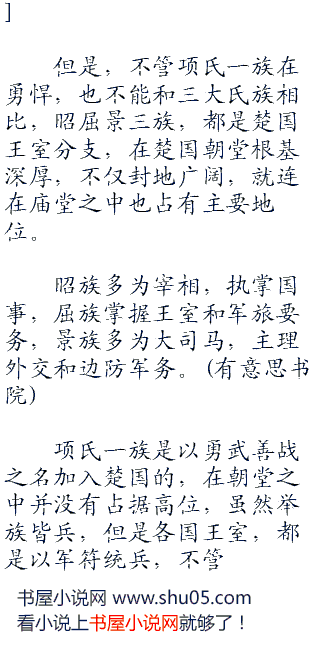 ]
但是，不管项氏一族在
勇悍，也不能和三大氏族相
比，昭屈景三族，都是楚国
王室分支，在楚国朝堂根基
深厚，不仅封地广阔，就连
在庙堂之中也占有主要地
位。
昭族多为宰相，执掌国
事，屈族掌握王室和军旅要
务，景族多为大司马，主理
外交和边防军务。(有意思书
院)
项氏一族是以勇武善战
之名加入楚国的，在朝堂之
中并没有占据高位，虽然举
族皆兵，但是各国王室，都
是以军符统兵，不管
书屋小说网 www.shu05.com
看小说上书屋小说网就够了！